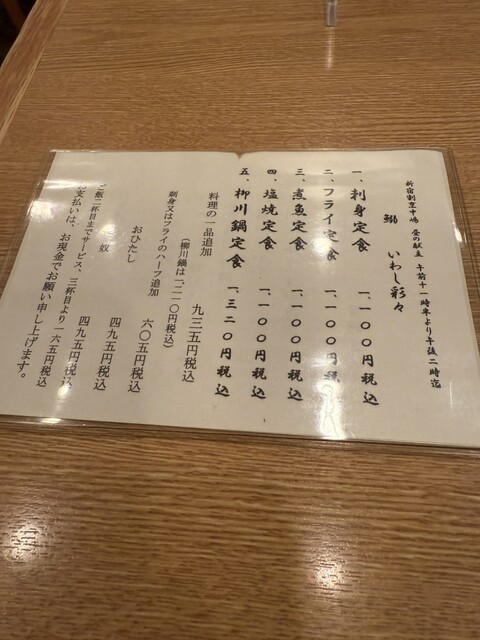 新宿割烹中嶋 昼の献立 午前十一時半より午後二時迄
鰯 いわし彩々
一、刺身定食 一、一〇〇円税込
二、フライ定食 一、一〇〇円税込
三、煮魚定食 一、一〇〇円税込
四、塩焼定食 一、一〇〇円税込
五、柳川鍋定食 一、三二〇円税込
料理の一品追加 九三五円税込
(柳川鍋は一、二一〇円税込)
刺身又はフライのハーフ追加 六〇五円税込
おひたし 四九五円税込
奴 四九五円税込
ご飯二杯目までサービス、三杯目より一六五円税込
お支払いは、お現金でお願い申し上げます。